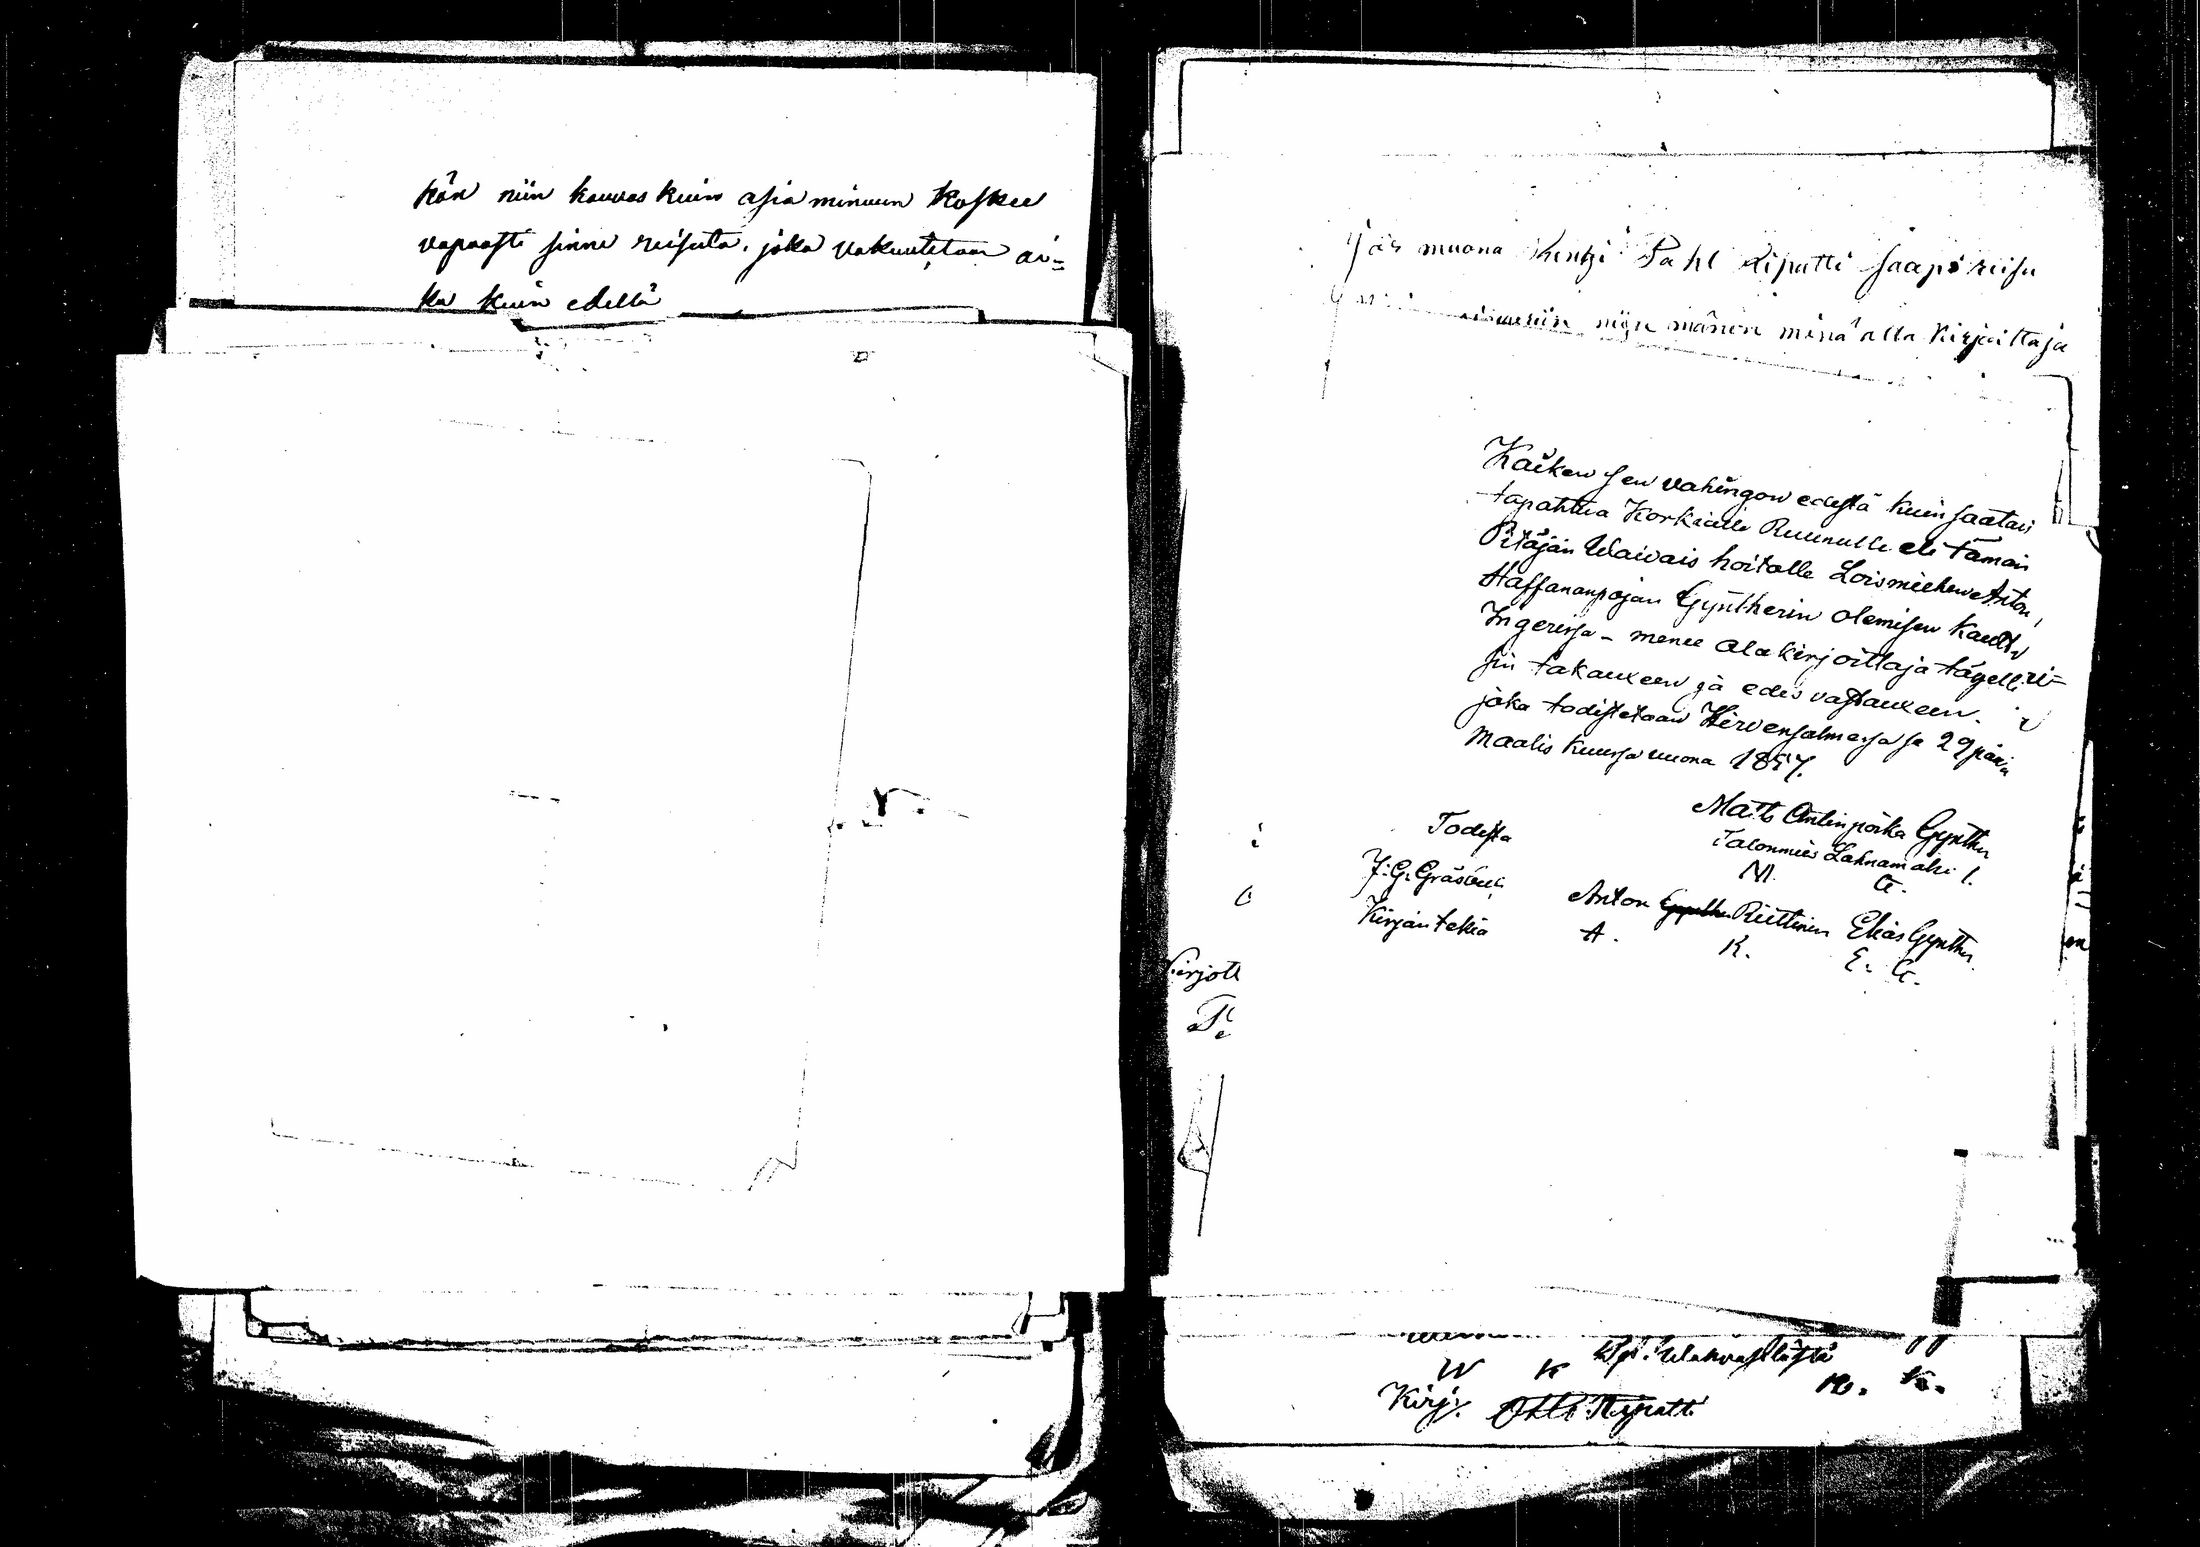 hän niin kauvas kuin asia minuun koskee
vapaasti sinne reisuta, joka vakuutetaan ai=
ka kuin edellä
jos muona Pahl Kiputti saapi reisu
niin mänen minä alla Kirjoittaja
Kaiken sen vahingon edestä kuin saatais
tapahtua Korkialle Ruunulle eli tämän
Pitäjän Waivais hoitolle Loismiehen Anton
Staffananpojan Gyntherin olemisen kautta
Ingerissa - menee ala kirjoittaja täyelli=
sin takauxeen ja edes vastauxeen.
joka todistetaan Hirvensalmessa se 29 päiv
Maalis kuussa vuona 1857.
Matts Antinpoika Gynther
Talonmies Lahnamalri 1.
M. G.
Todista
J: G. Gråsten
Kirjan tekiä
Anton Riittinen Elias Gynther
A. R. E. G.
Kirjott
W K
Kirj: